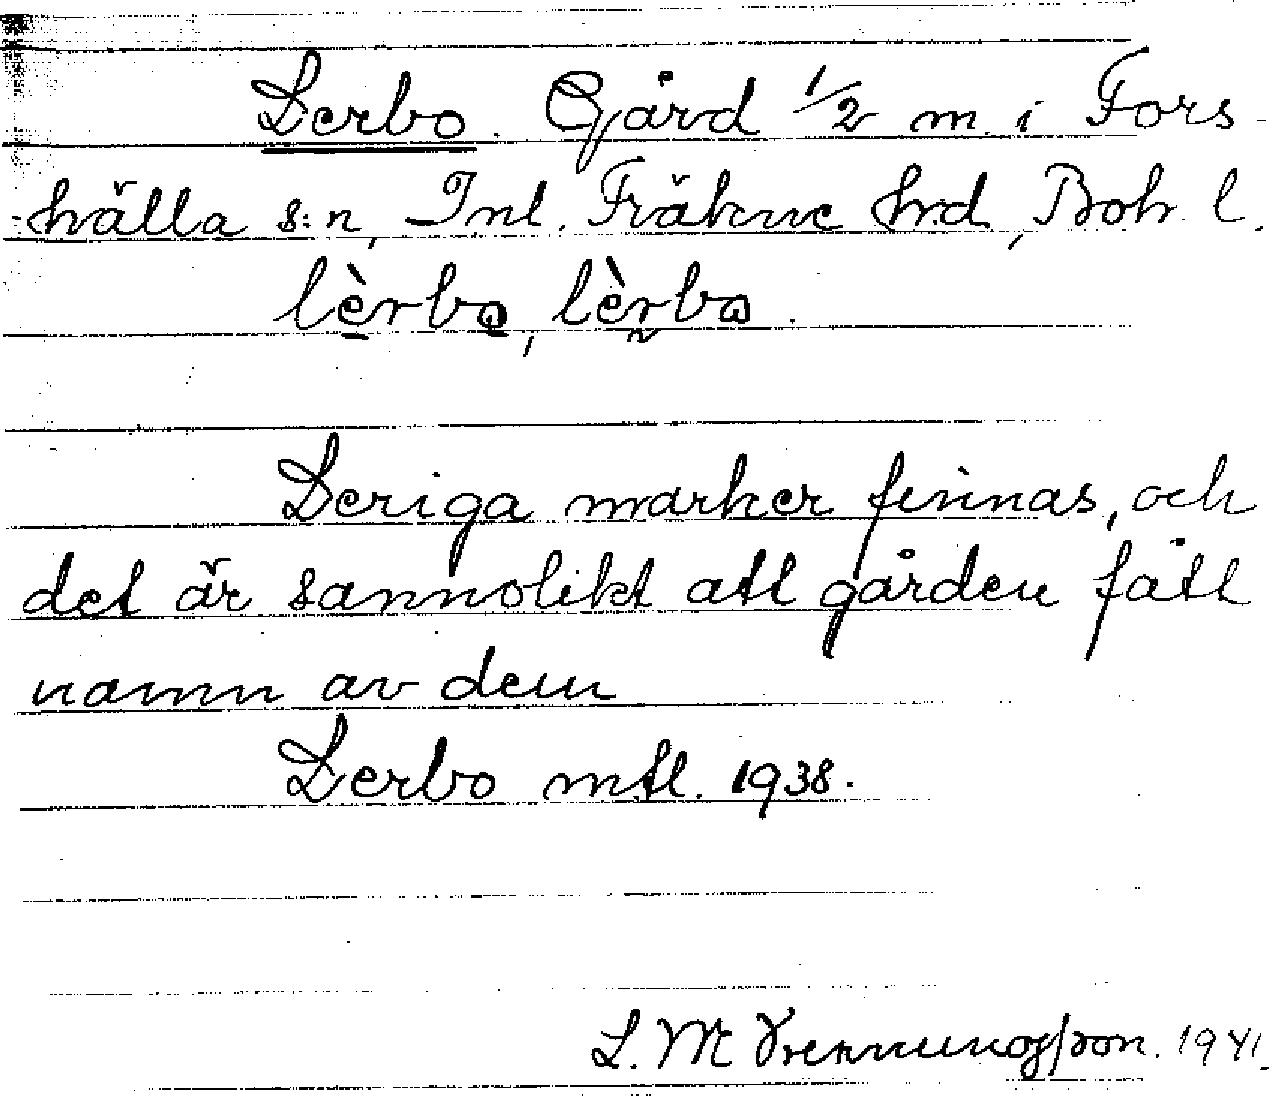 Lerbo. Gård 1/2 m. i Fors-
hälla s:n, Inl. Fräkne hrd, Boh. l.
lèrbo, lèrbo.
Leriga marker finnas, och
det är sannolikt att gården fått
namn av dem
Lerbo mtl. 1938.
L. M. 1941.